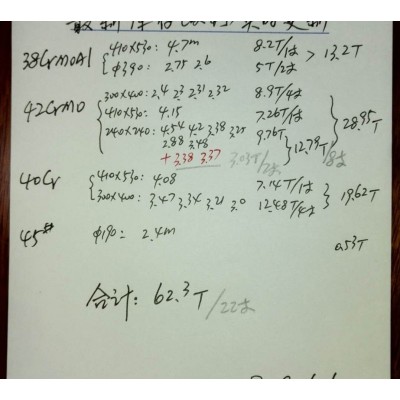 38CrMoAl 410×530: 4.7m 8.2T/1支
φ390: 2.75 2.6 5T/2支 > 13.2T
42CrMo 300×400: 2.4 2.3 2.31 2.32 8.9T/4支
410×530: 4.15 7.26T/1支 28.95T
240×240: 4.54 4.2 3.38 3.25 9.76T
2.88 3.48 12.79T
+ 3.38 3.37 3.03T/2支 /8支
40Cr 410×530: 4.08 7.14T/1支
300×400: 3.47 3.34 3.21 3.0 12.48T/4支 19.62T
45# φ190: 2.4m 0.53T
合计: 62.3T/22支